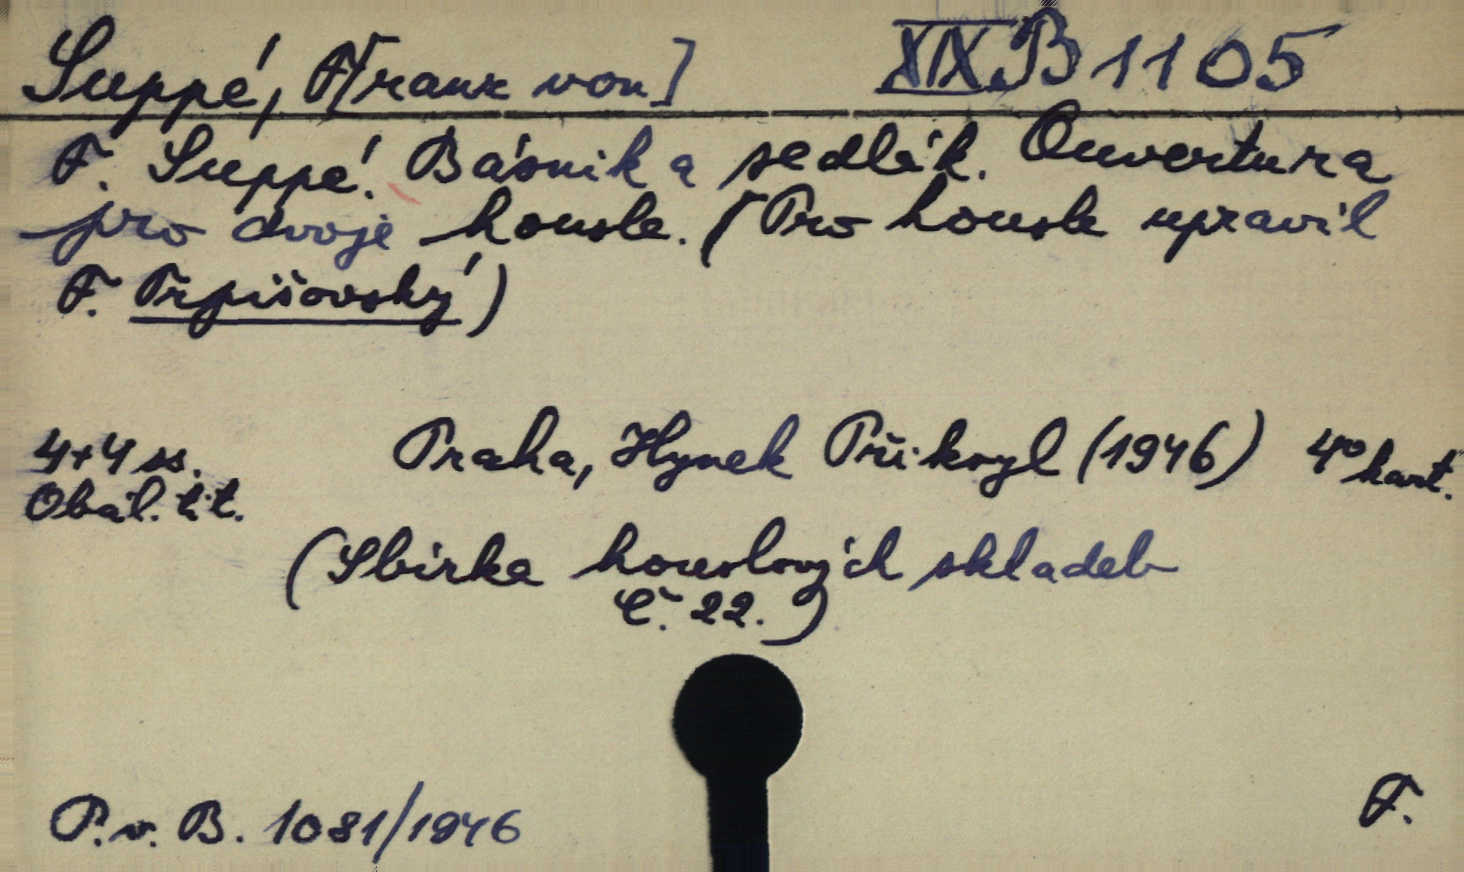 Suppé, F[ranz von] XIX B 1105
F. Suppé. Básník a sedlák. Ouvertura
pro dvoje housle. (Pro housle upravil
F. Trpišovský)
4+4 ss. Praha, Hynek Přikryl (1946) 4° kart.
Obál. tit.
(Sbírka houslových skladeb
č. 22.)
P. v. B. 1081/1946 F.